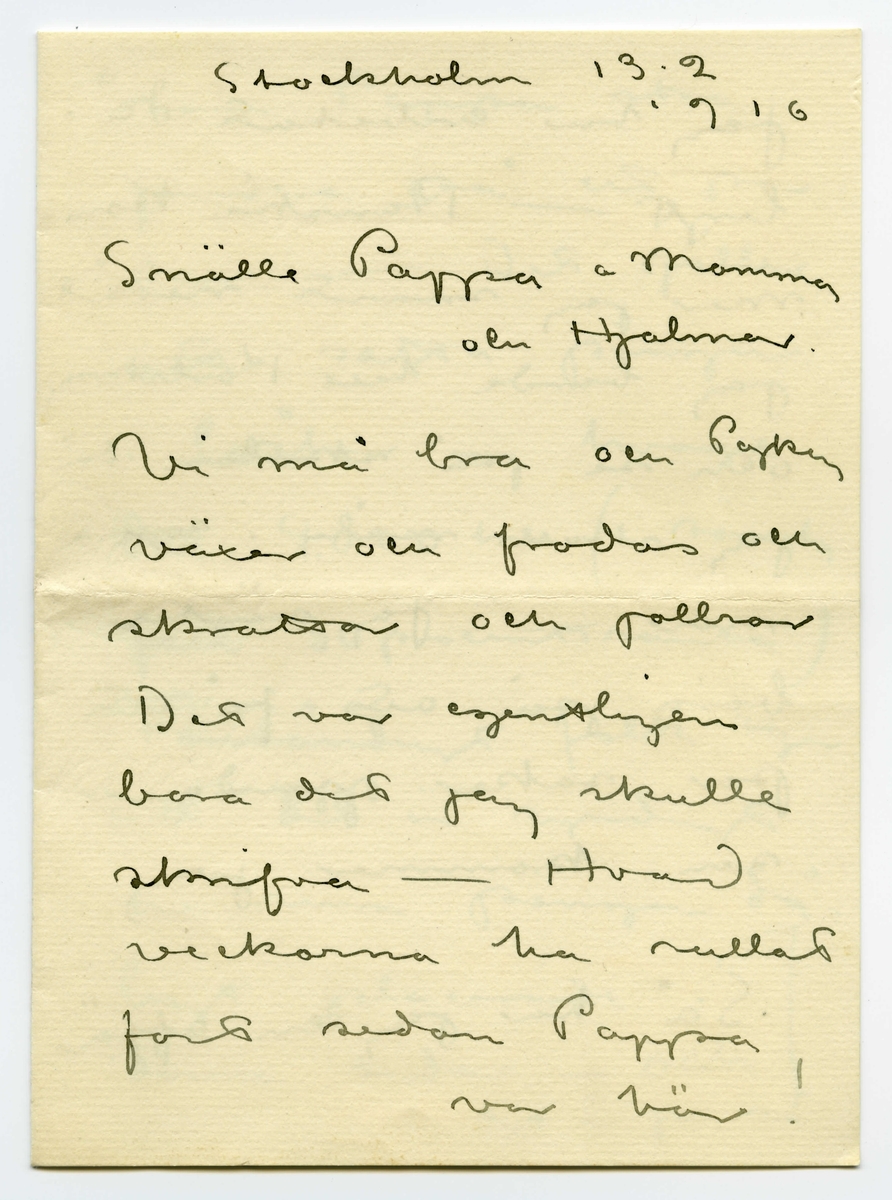 Stockholm 13.2
1916
Snälle Pappa o Mamma
och Hjalmar.
Vi må bra och Pojken
växer och frodas och
skrattar och jollrar
Det var egentligen
bara det jag skulle
skrifva — Hvad
veckorna ha rullat
fort sedan Pappa
var här!